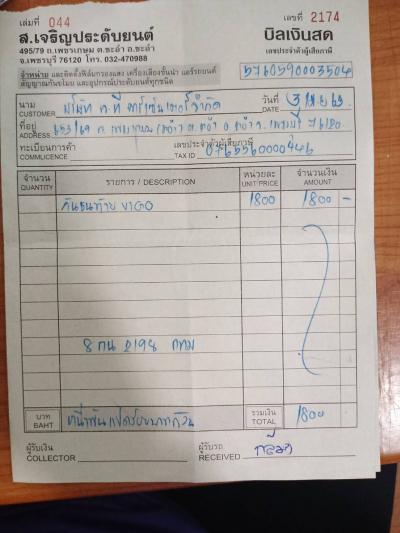 เล่มที่ 044
เลขที่ 2174
ส.เจริญประดับยนต์
บิลเงินสด
495/79 ถ.เพชรเกษม ต.ชะอำ อ.ชะอำ
เลขประจำตัวผู้เสียภาษี
จ.เพชรบุรี 76120 โทร. 032-470988
จำหน่าย และติดตั้งฟิล์มกรองแสง เครื่องเสียงชั้นนำ แอร์รถยนต์
สัญญาณกันขโมย และอุปกรณ์ประดับยนต์ทุกชนิด
3760590003504
นาม
CUSTOMER
วันที่
DATE
ที่อยู่
ADDRESS
ทะเบียนการค้า
COMMLICENCE
เลขประจำตัวผู้เสียภาษี
TAX ID 0765560000446
จำนวน
QUANTITY
รายการ / DESCRIPTION
หน่วยละ
UNIT/PRICE
จำนวนเงิน
AMOUNT
กันชนท้าย VIGO 1800 1800 -
8 กน 2198 กทม
บาท
BAHT
หนึ่งพันแปดร้อยบาทถ้วน
รวมเงิน
TOTAL
1800
ผู้รับเงิน
COLLECTOR
ผู้รับรถ
RECEIVED